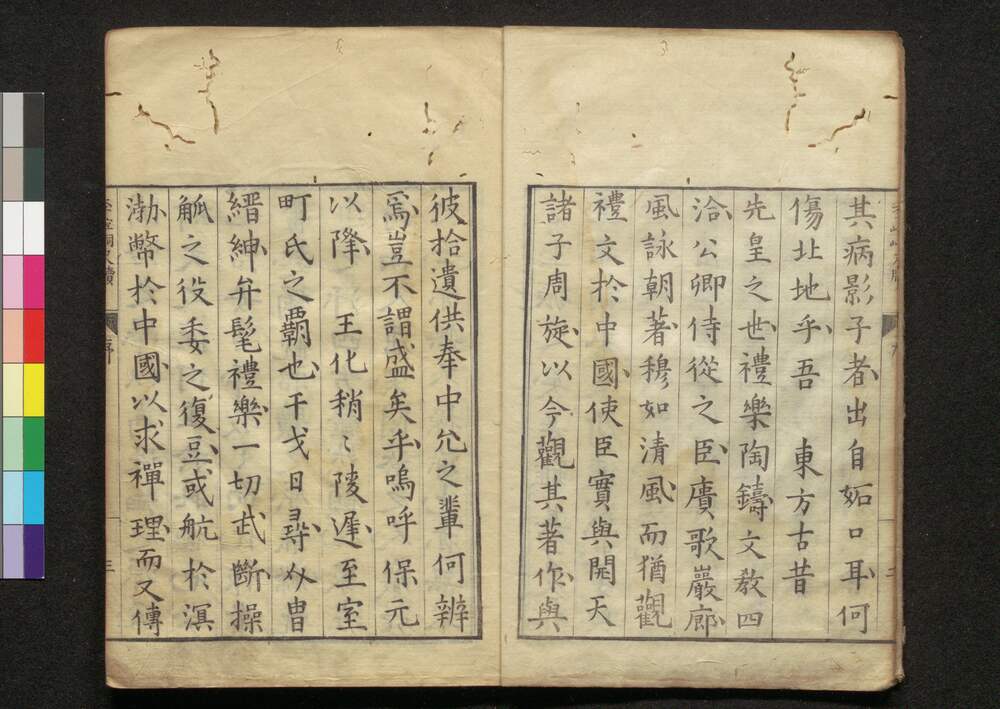 其病影子者出自妬口耳何
傷址地乎吾　東方古昔
先皇之世禮樂陶鑄文教四
洽公卿侍從之臣賡歌巖廊
風詠朝著穆如清風而猶觀
禮文於中國使臣實與開天
諸子周旋以今觀其著作與
彼拾遺供奉中允之輩何辨
焉豈不謂盛矣乎嗚呼保元
以降　王化稍〻陵遲至室
町氏之覇也干戈日尋分曺
縉紳弁髦禮樂一切武斷操
觚之役委之復豆或航於溟
渤幣於中國以求禪理而又傳
序
三